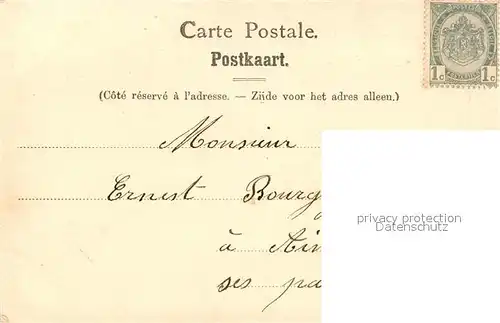 Carte Postale.
Postkaart.
1c 1c
(Côté réservé à l'adresse. — Zijde voor het adres alleen.)
Monsieur
Ernest Bourg
privacy protection
à
Datenschutz
ses